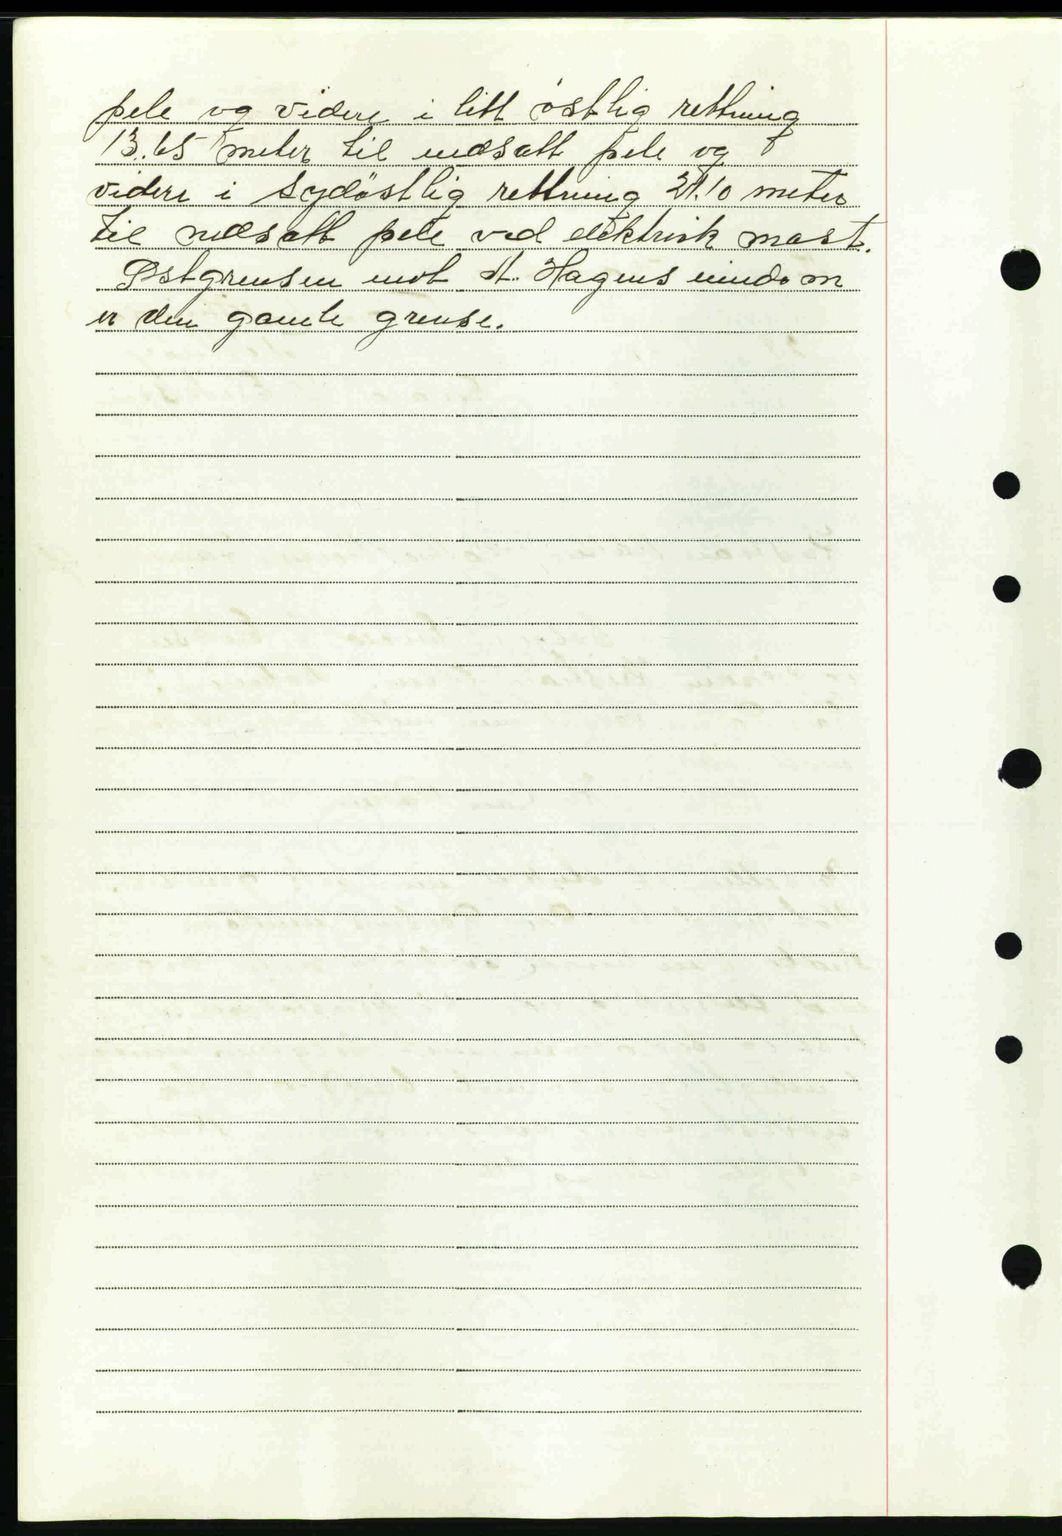 pele og videre i litt östlig rettning
13.65 meter til nedsatt pele og
videre i sydöstlig rettning 21.10 meter
til nedsatt pele ved elektrisk mast.
Østgrensen mot A. Hagens eiendom
er den gamle grense.